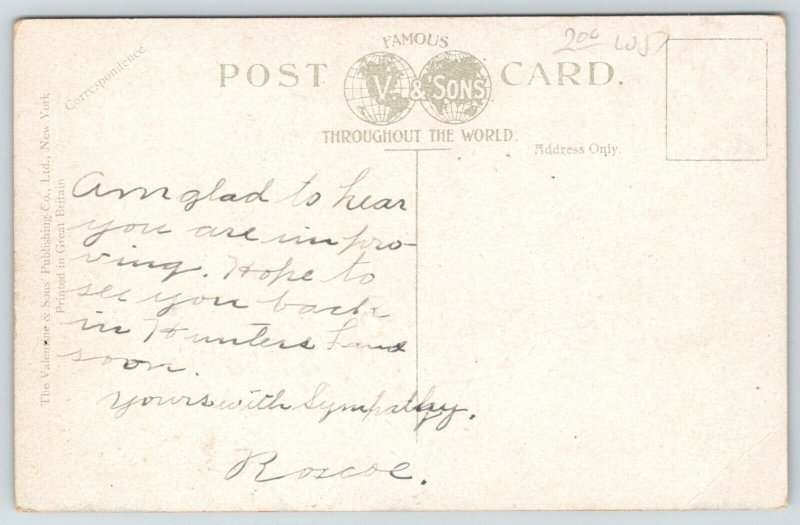 FAMOUS
POST V. & SONS CARD.
THROUGHOUT THE WORLD.
Correspondence
Address Only.
The Valentine & Sons Publishing Co., Ltd., New York
Printed in Great Britain
200
Am glad to hear
you are impro-
ving. Hope to
see you back
in Hunters Land
soon.
Yours with Sympathy.
Roscoe.